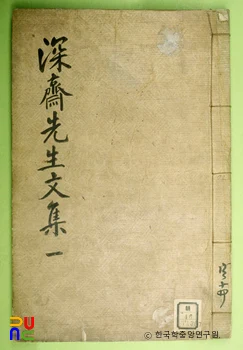 深齋先生文集 一
共十四
© 한국학중앙연구원